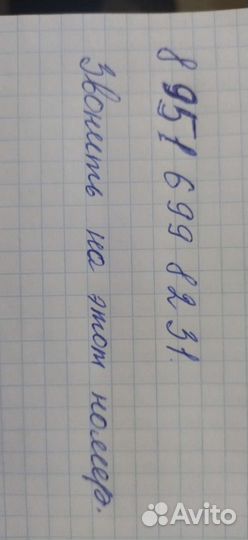 8 951 699 82 31.
Звонить на этот номер.
Avito